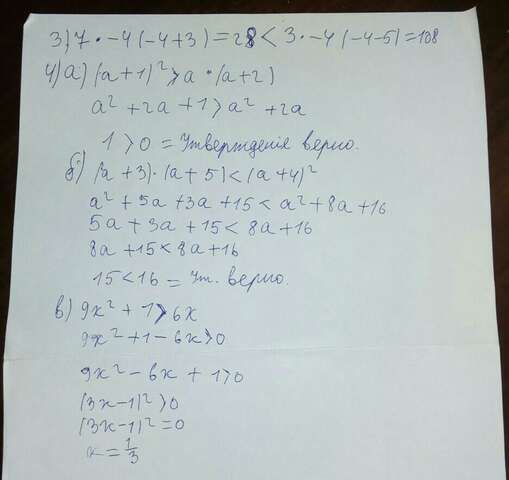 3) 7 · -4 (-4+3) = 28 < 3 · -4 (-4-5) = 108
4) а) (a+1)² > a · (a+2)
a² + 2a + 1 > a² + 2a
1 > 0 = Утверждения верно.
б) (a+3) · (a+5) < (a+4)²
a² + 5a + 3a + 15 < a² + 8a + 16
5a + 3a + 15 < 8a + 16
8a + 15 < 8a + 16
15 < 16 = Ут. верно.
в) 9x² + 1 > 6x
9x² + 1 - 6x > 0
9x² - 6x + 1 > 0
(3x-1)² > 0
(3x-1)² = 0
x = 1/3